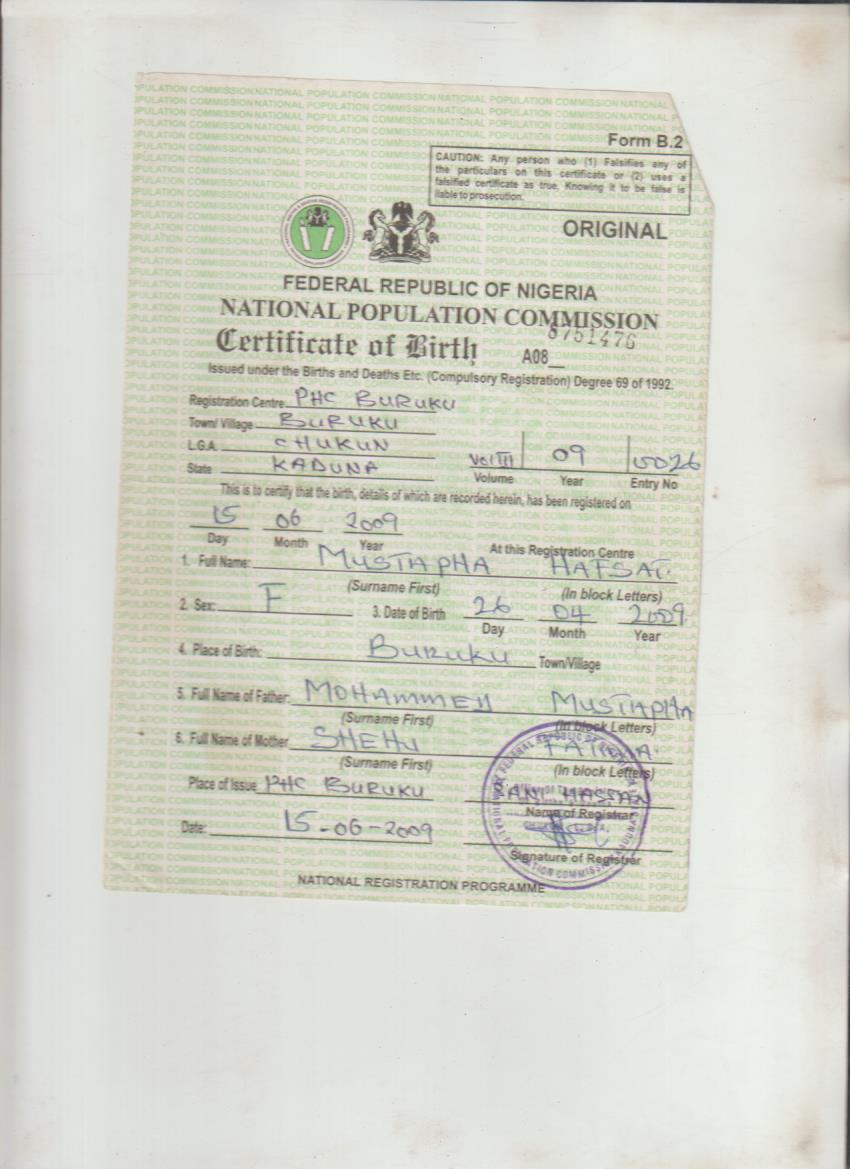 Form B.2
CAUTION: Any person who (1) Falsifies any of
the particulars on this certificate or (2) uses a
falsified certificate as true, Knowing it to be false is
liable to prosecution.
ORIGINAL
FEDERAL REPUBLIC OF NIGERIA
NATIONAL POPULATION COMMISSION
8751476
Certificate of Birth A08
Issued under the Births and Deaths Etc. (Compulsory Registration) Degree 69 of 1992.
Registration Centre PHC BURUKU
Town/Village BURUKU
L.G.A. CHUKUN
State KADUNA Vol III 09 0026
Volume Year Entry No
This is to certify that the birth, details of which are recorded herein, has been registered on
15 06 2009
Day Month Year At this Registration Centre
1. Full Name: MUSTAPHA HAFSAT
(Surname First) (In block Letters)
2. Sex: F 3. Date of Birth 26 04 2009
Day Month Year
4. Place of Birth: BURUKU Town/Village
5. Full Name of Father: MOHAMMED MUSTAPHA
(Surname First) (In block Letters)
6. Full Name of Mother SHEHU FATIMA
(Surname First) (In block Letters)
Place of Issue PHC BURUKU SANI HASSAN
Name of Registrar
Date: 15-06-2009
Signature of Registrar
NATIONAL REGISTRATION PROGRAMME